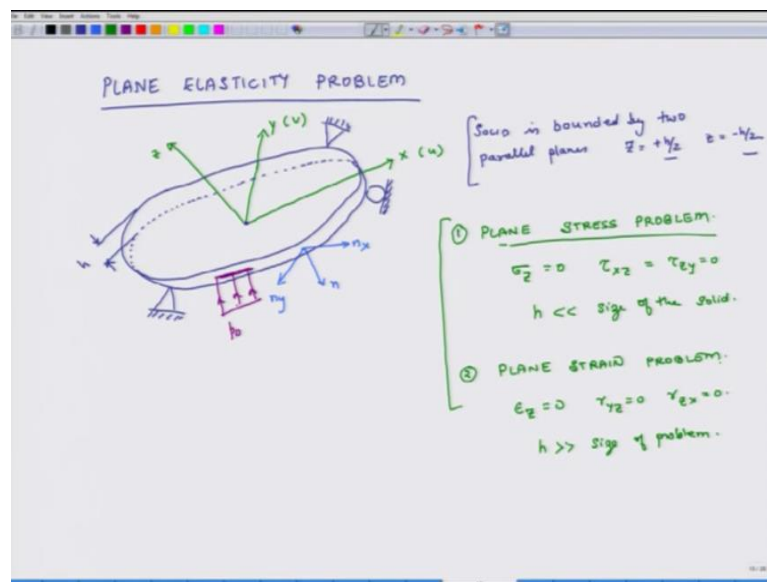 File Edit View Insert Actions Tools Help
PLANE ELASTICITY PROBLEM
y (v)
z
x (u)
h
nx
ny
n
p0
Solid is bounded by two
parallel planes z = +h/2 z = -h/2
① PLANE STRESS PROBLEM.
σz = 0 τxz = τzy = 0
h << size of the solid.
② PLANE STRAIN PROBLEM.
εz = 0 γyz = 0 γzx = 0.
h >> size of problem.